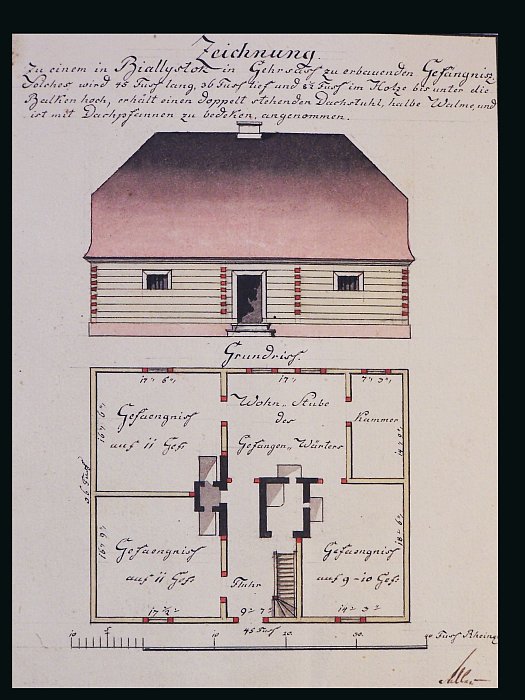 Zeichnung
Zu einem in Biallystok in Gehrsass zu erbauenden Gefängniss.
Solches wird 45 Fuss lang, 36 Fuss tief und 8½ Fuss im Holze bis unter die
Balken hoch, erhält einen doppelt stehenden Dachstuhl, halbe Walme, und
ist mit Dachpfannen zu bedeken, angenommen.
Grundriss.
17" 6"
17"
7" 3"
Gefaengniss
auf 11 Gef:
16" 6"
Wohn„ Stube
des
Gefangen„ Wärters
Kammer
36 Fuss
Gefaengniss
auf 11 Gef:
16" 9"
17"
Fluhr
9" 7"
Gefaengniss
auf 9-10 Gef:
18" 6"
14" 3"
45 Fuss
10
5
10
20
30
40 Fuss Rheinl: